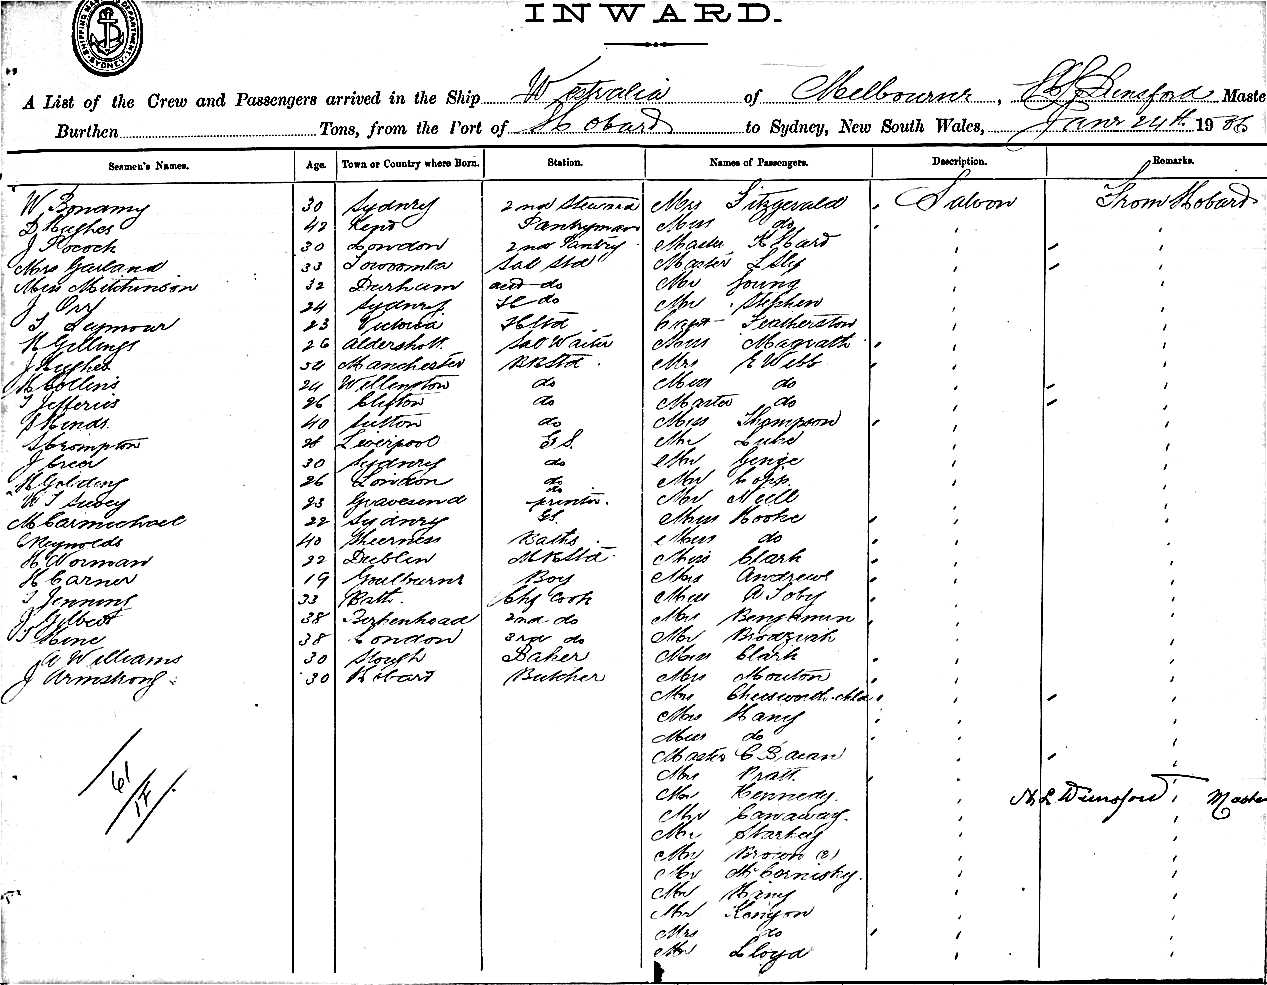 SHIPPING MASTER'S DEPARTMENT SYDNEY
INWARD.
A List of the Crew and Passengers arrived in the Ship Westralia of Melbourne, Master
Burthen Tons, from the Port of Hobard to Sydney, New South Wales, Janr 24th 19
Seamen's Names. Age. Town or Country where Born. Station. Names of Passengers. Description. Remarks.
W Bonamy 30 Sydney 2nd Steward Mrs Fitzgerald Saloon From Hobard
D Hughes 42 Kent Pantryman Miss do
J Pocock 30 London 2nd Pantry Master K Hard
Mrs Garland 33 Toowoomba Sal Std Master
Miss Mitchinson 32 Durham and do Mr Young
J Orr 24 Sydney do Mr Stephen
T Seymour 23 Victoria Std Capt Featherston
H Gillings 26 Aldershott Sal Waiter Miss Magrath
J Hughes Manchester RKStd Mrs E Webb
H Collins 24 Wellington do Miss do
T Jefferies 26 Clifton do Master do
Hinds 40 Sutton do Miss Thompson
S Crompton Liverpool G.S. Mr Luke
J Crear 30 Sydney do Mr Genge
H Golding 26 London do Mr Copp
W J Suvey 23 Gravesend do printer. Mr Neill
M Carmichael 22 Sydney GS. Miss Hooke
C Reynolds 40 Sheerness Baths Miss do
H Worman 22 Dublin MRStd Miss Clark
H Carner 19 Goulburne Boy Mrs Andrews
T Jenning 33 Bath. Chf Cook Miss A Toby
J Gilbert 38 Berkenhead 2nd do Mrs Benjamin
T Hine 38 London 3rd do Mr Brodziak
A Williams 30 Slough Baker Miss Clark
J Armstrong 30 Hobart Butcher Mrs Mouton
Mrs Cheesworth child
Mrs Hany
Miss do
Master C
Mrs Pratt
61 Mr Kennedy. Master
14 Mr Canaway.
Mr Starkey
Mr Brown (2)
Mr McCornisky.
Mr King
Mr Kenyon
Mrs do
Mr Lloyd